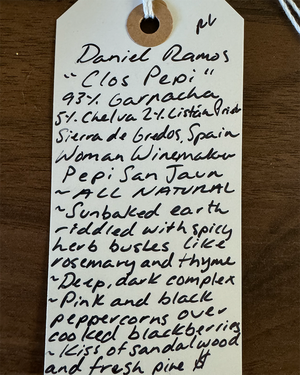 RL
Daniel Ramos
"Clos Pepi"
93% Garnacha
5% Chelva 2% Listán Prieto
Sierra de Gredos, Spain
Woman Winemaker
Pepi San Juan
~ ALL NATURAL
~ Sunbaked earth
riddled with spicy
herb bushes like
rosemary and thyme
~ Deep, dark complex
~ Pink and black
peppercorns over
cooked blackberries
~ Kiss of sandalwood
and fresh pine